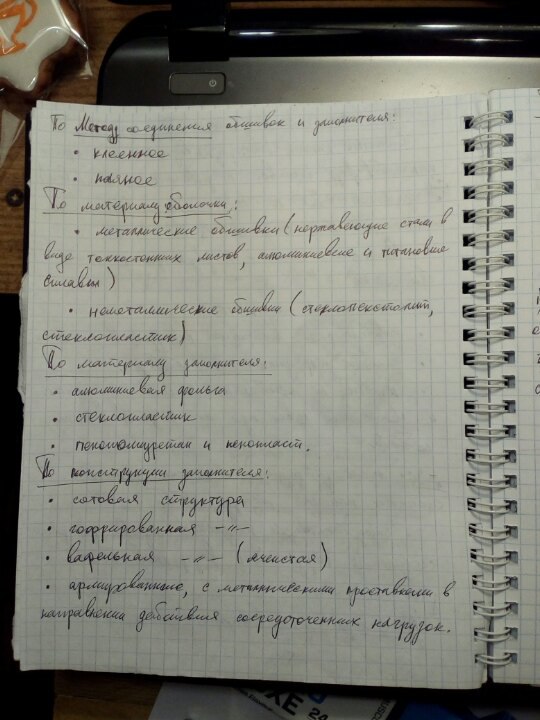 По Методу соединения обшивок и заполнителя:
• клеенное
• паяное
По материалу оболочки:
• металлические обшивки (нержавеющие стали в
виде тонкостенных листов, алюминиевые и титановые
сплавы)
• неметаллические обшивки (стеклотекстолит,
стеклопластик)
По материалу заполнителя:
• алюминиевая фольга
• стеклопластик
• пенополиуретан и пенопласт.
По конструкции заполнителя:
• сотовая структура
• гофрированная –〃–
• вафельная –〃– (ячеистая)
• армированные, с металлическими проставками в
направлении действия сосредоточенных нагрузок.